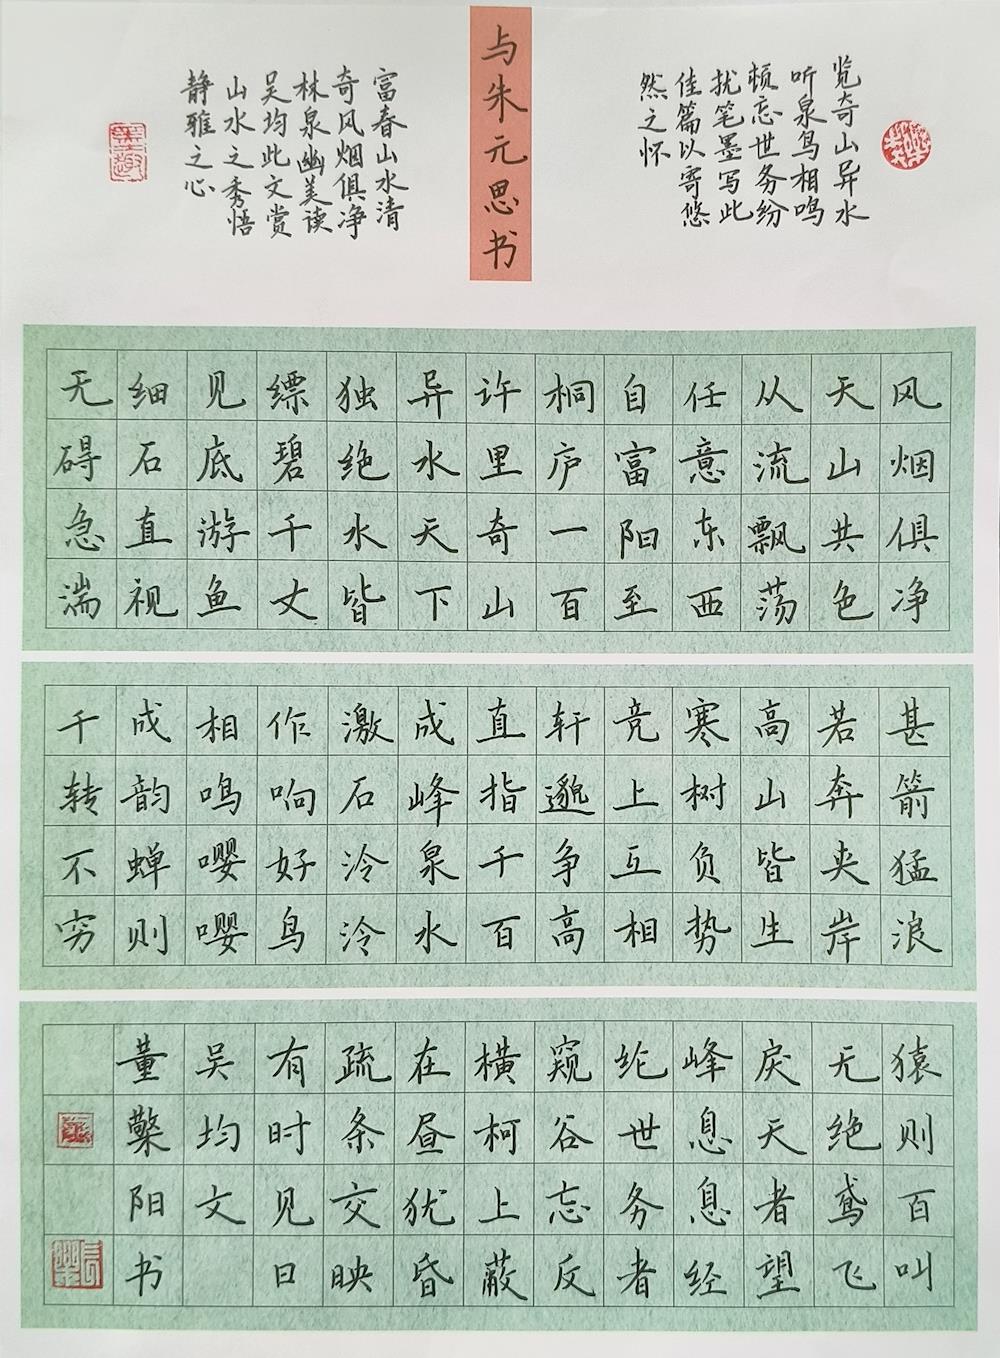 与朱元思书
览奇山异水
听泉鸟相鸣
顿忘世务纷
扰笔墨写此
佳篇以寄悠
然之怀
富春山水清
奇风烟俱净
林泉幽美读
吴均此文赏
山水之秀悟
静雅之心
风烟俱净
天山共色
从流飘荡
任意东西
自富阳至
桐庐一百
许里奇山
异水天下
独绝水皆
缥碧千丈
见底游鱼
细石直视
无碍急湍
甚箭猛浪
若奔夹岸
高山皆生
寒树负势
竞上互相
轩邈争高
直指千百
成峰泉水
激石泠泠
作响好鸟
相鸣嘤嘤
成韵蝉则
千转不穷
猿则百叫
无绝鸢飞
戾天者望
峰息息经
纶世务者
窥谷忘反
横柯上蔽
在昼犹昏
疏条交映
有时见日
吴均文
董檠阳书